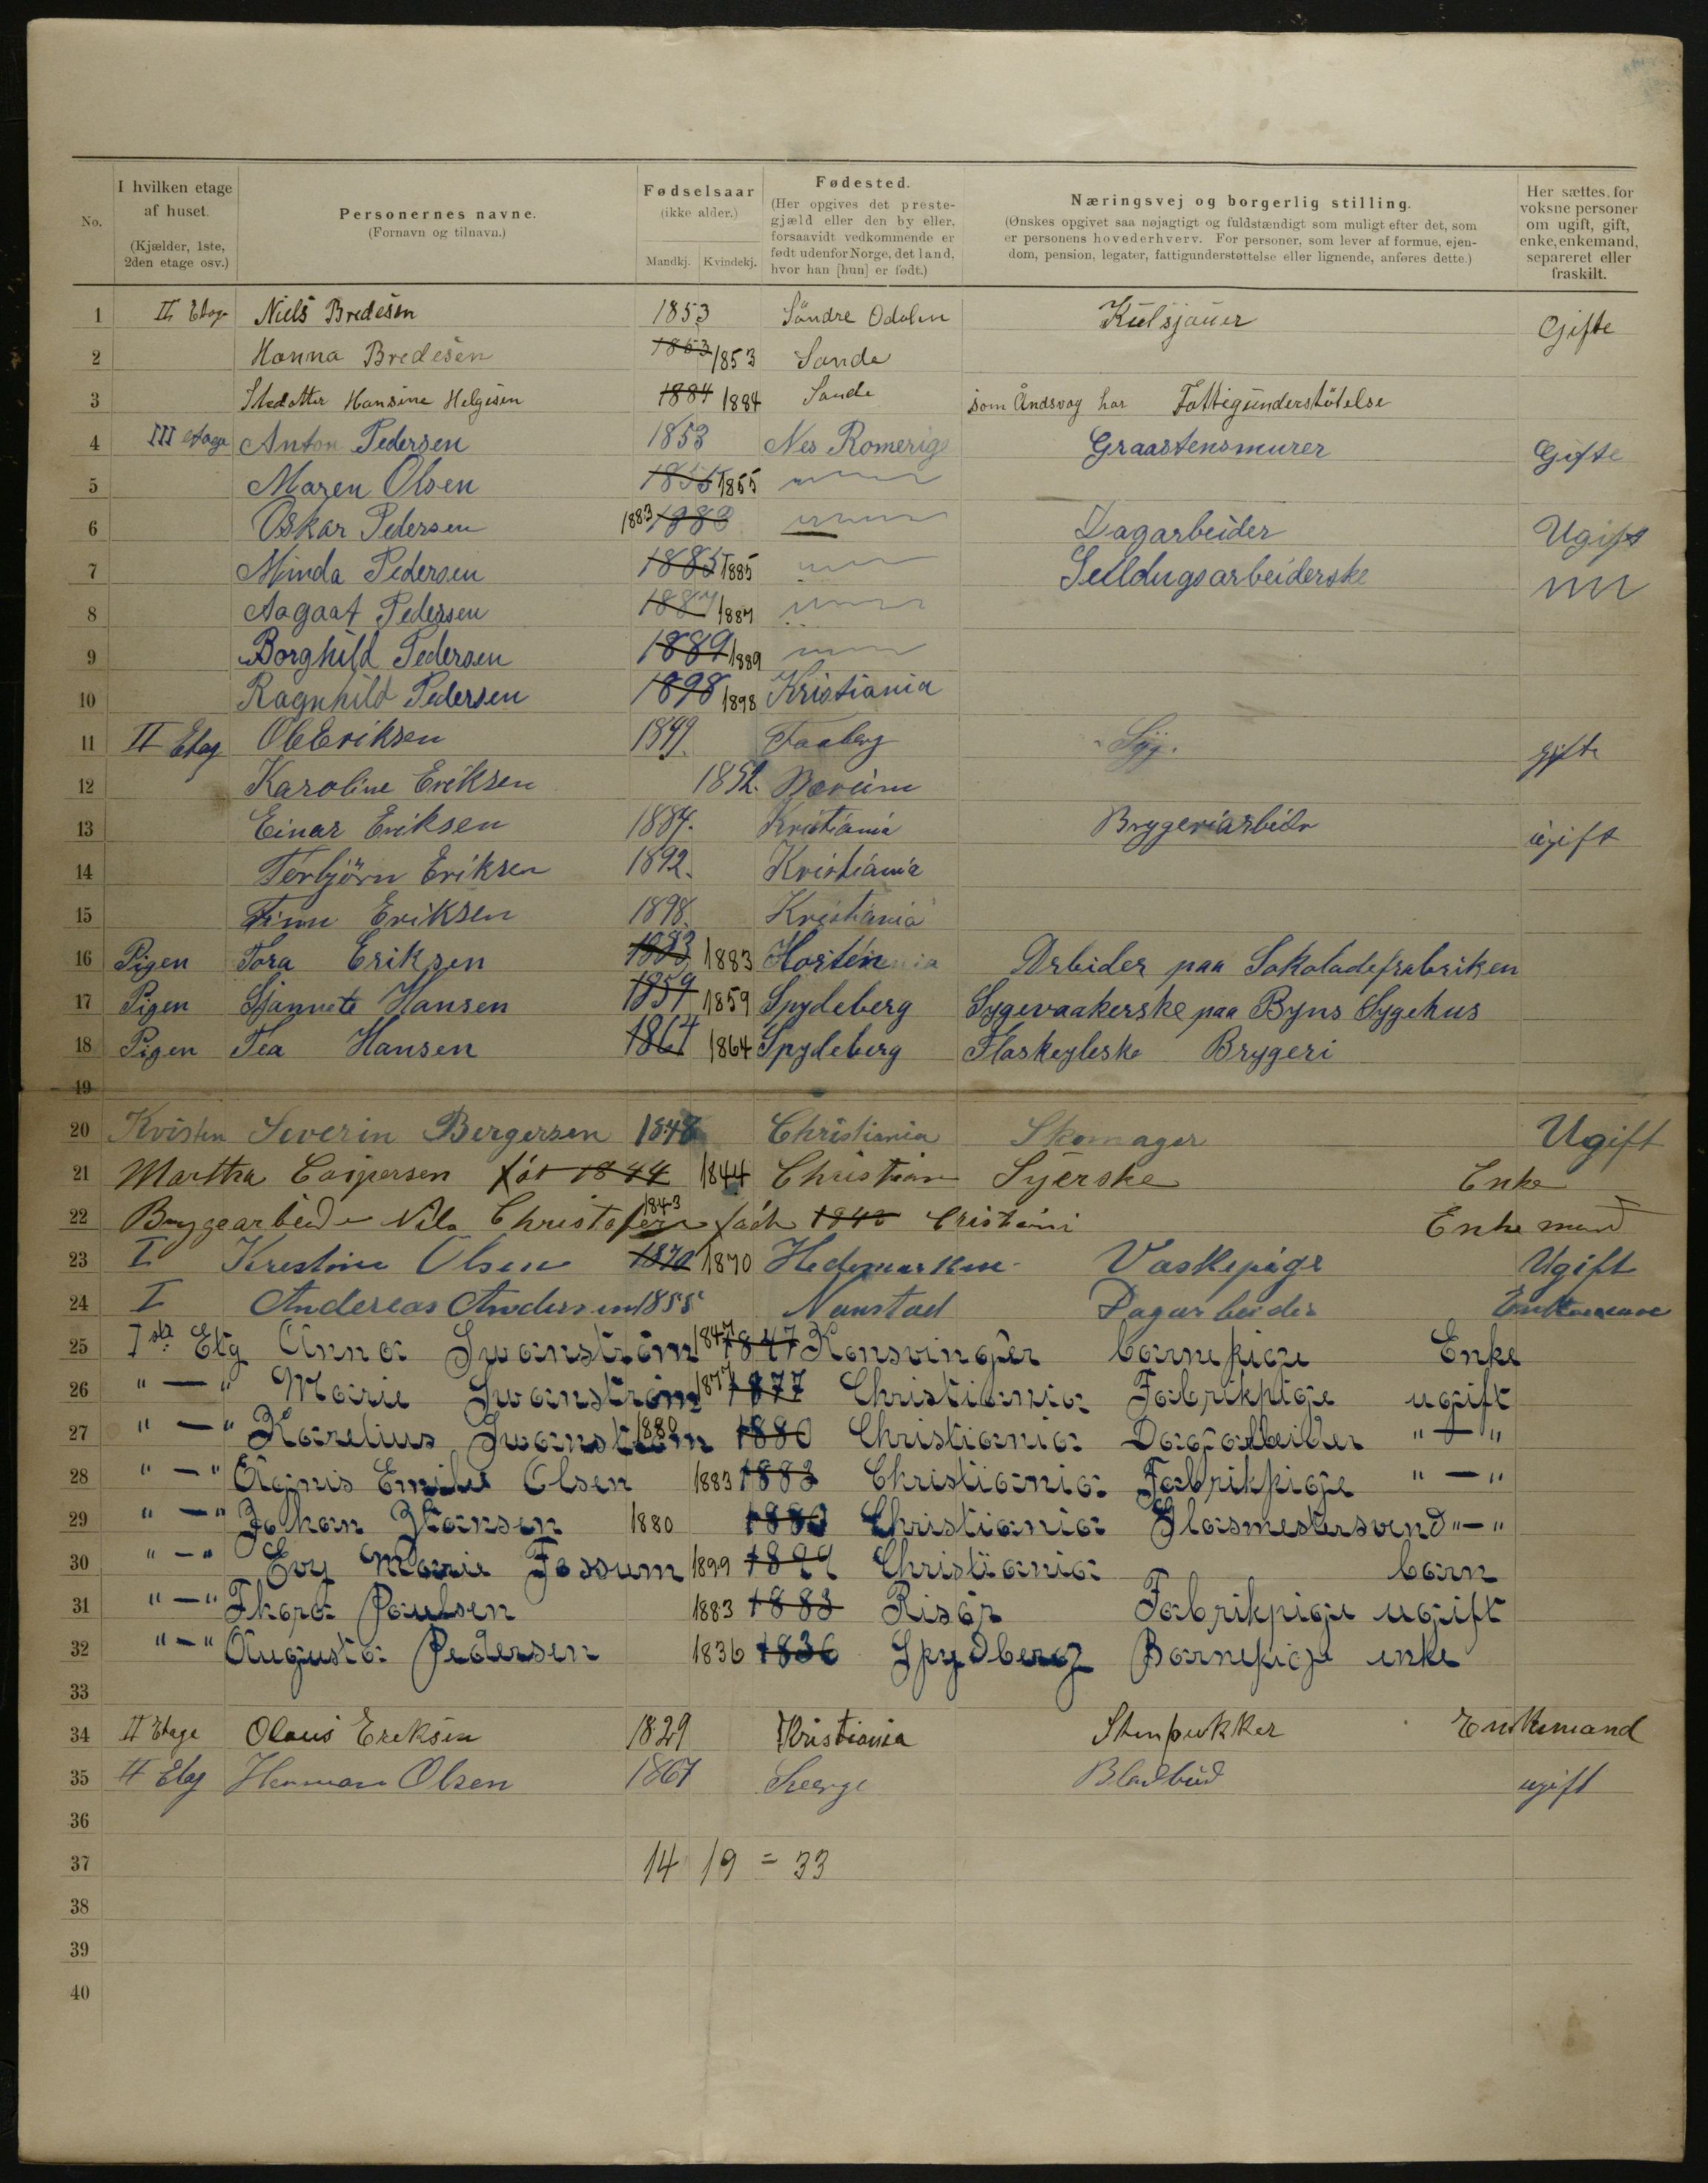 No.
I hvilken etage af huset. (Kjælder, 1ste, 2den etage osv.)
Personernes navne. (Fornavn og tilnavn.)
Fødselsaar (ikke alder.) Mandkj. Kvindekj.
Fødested. (Her opgives det prestegjæld eller den by eller, forsaavidt vedkommende er født udenfor Norge, det land, hvor han [hun] er født.)
Næringsvej og borgerlig stilling. (Ønskes opgivet saa nøjagtigt og fuldstændigt som muligt efter det, som er personens hovederhverv. For personer, som lever af formue, ejendom, pension, legater, fattigunderstøttelse eller lignende, anføres dette.)
Her sættes, for voksne personer om ugift, gift, enke, enkemand, separeret eller fraskilt.
1 II Etage Niels Bredesen 1853 Söndre Odalen Kulsjauer Gifte
2 Hanna Bredesen 1853 1853 Sande
3 Stedatter Hansine Helgesen 1884 1884 Sande som Åndsvag har Fattigunderstötelse
4 III etage Anton Pedersen 1853 Nes Romerige Graastensmurer Gifte
5 Maren Olsen 1855 1855
6 Oskar Pedersen 1883 1883 Dagarbeider Ugift
7 Minda Pedersen 1885 1885 Seildugsarbeiderske
8 Aagaat Pedersen 1887 1887
9 Borghild Pedersen 1889 1889
10 Ragnhild Pedersen 1898 1898 Kristiania
11 II Etag Ole Eriksen 1849. Faaberg Syg. gifte
12 Karoline Eriksen 1852. Boreim
13 Einar Eriksen 1884. Kristiania Brygeriarbeidr ugift
14 Torbjörn Eriksen 1892. Kristiania
15 Finn Eriksen 1898. Kristiania
16 Pigen Tora Eriksen 1883 1883 Horten Arbeider paa Sokoladefrabriken
17 Pigen Sjannete Hansen 1859 1859 Spydeberg Sygevaakerske paa Byns Sygehus
18 Pigen Tea Hansen 1864 1864 Spydeberg Flaskeyleske Brygeri
19
20 Kvisten Severin Bergersen 1848 Christiania Skomager Ugift
21 Martha Caspersen föt 1844 1844 Christian Syerske Enke
22 Bryggearbeider Nils Christofersen 1843 födt 1843 Cristiani Enkemand
23 I Krestine Olsen 1870 1870 Hedemarken Vaskepige Ugift
24 I Andereas Andersen 1855 Nanstad Dagarbeider Enkemand
25 1ste Etg Anna Swanström 1847 1847 Konsvinger barnepige Enke
26 " — " Marie Swanström 1877 1877 Christiania Fabrikpige ugift
27 " — " Karelius Swanström 1880 1880 Christiania Dagarbeider " — "
28 " — " Agnis Emilie Olsen 1883 1883 Christiania Fabrikpige " — "
29 " — " Johan Hansen 1880 1880 Christiania Glasmestersvend " — "
30 " — " Evy Marie Fossum 1899 1899 Christiania barn
31 " — " Thora Paulsen 1883 1883 Risör Fabrikpige ugift
32 " — " Augusta Pedersen 1836 1836 Spydberg Barnepige enke
33
34 II Etage Olaus Ereksen 1829 Kristiania Stenpukker Enkemand
35 II Etag Herman Olsen 1867 Sverge Bladbud ugift
36
37 14 19 = 33
38
39
40